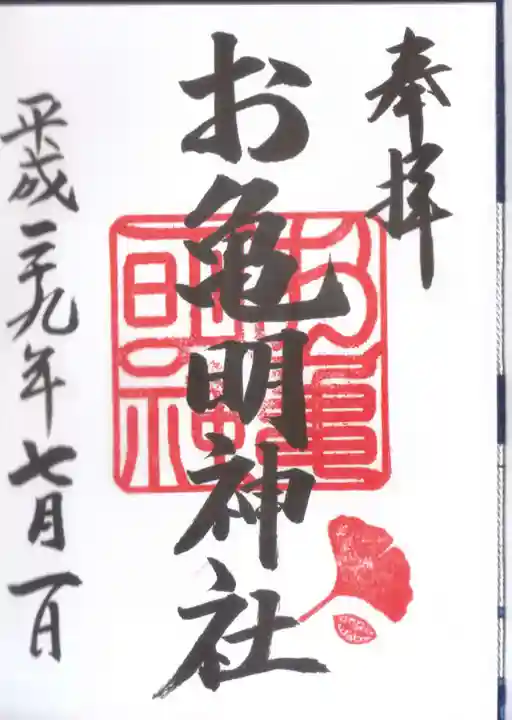 奉拝
お亀明神社
平成二十九年七月一日